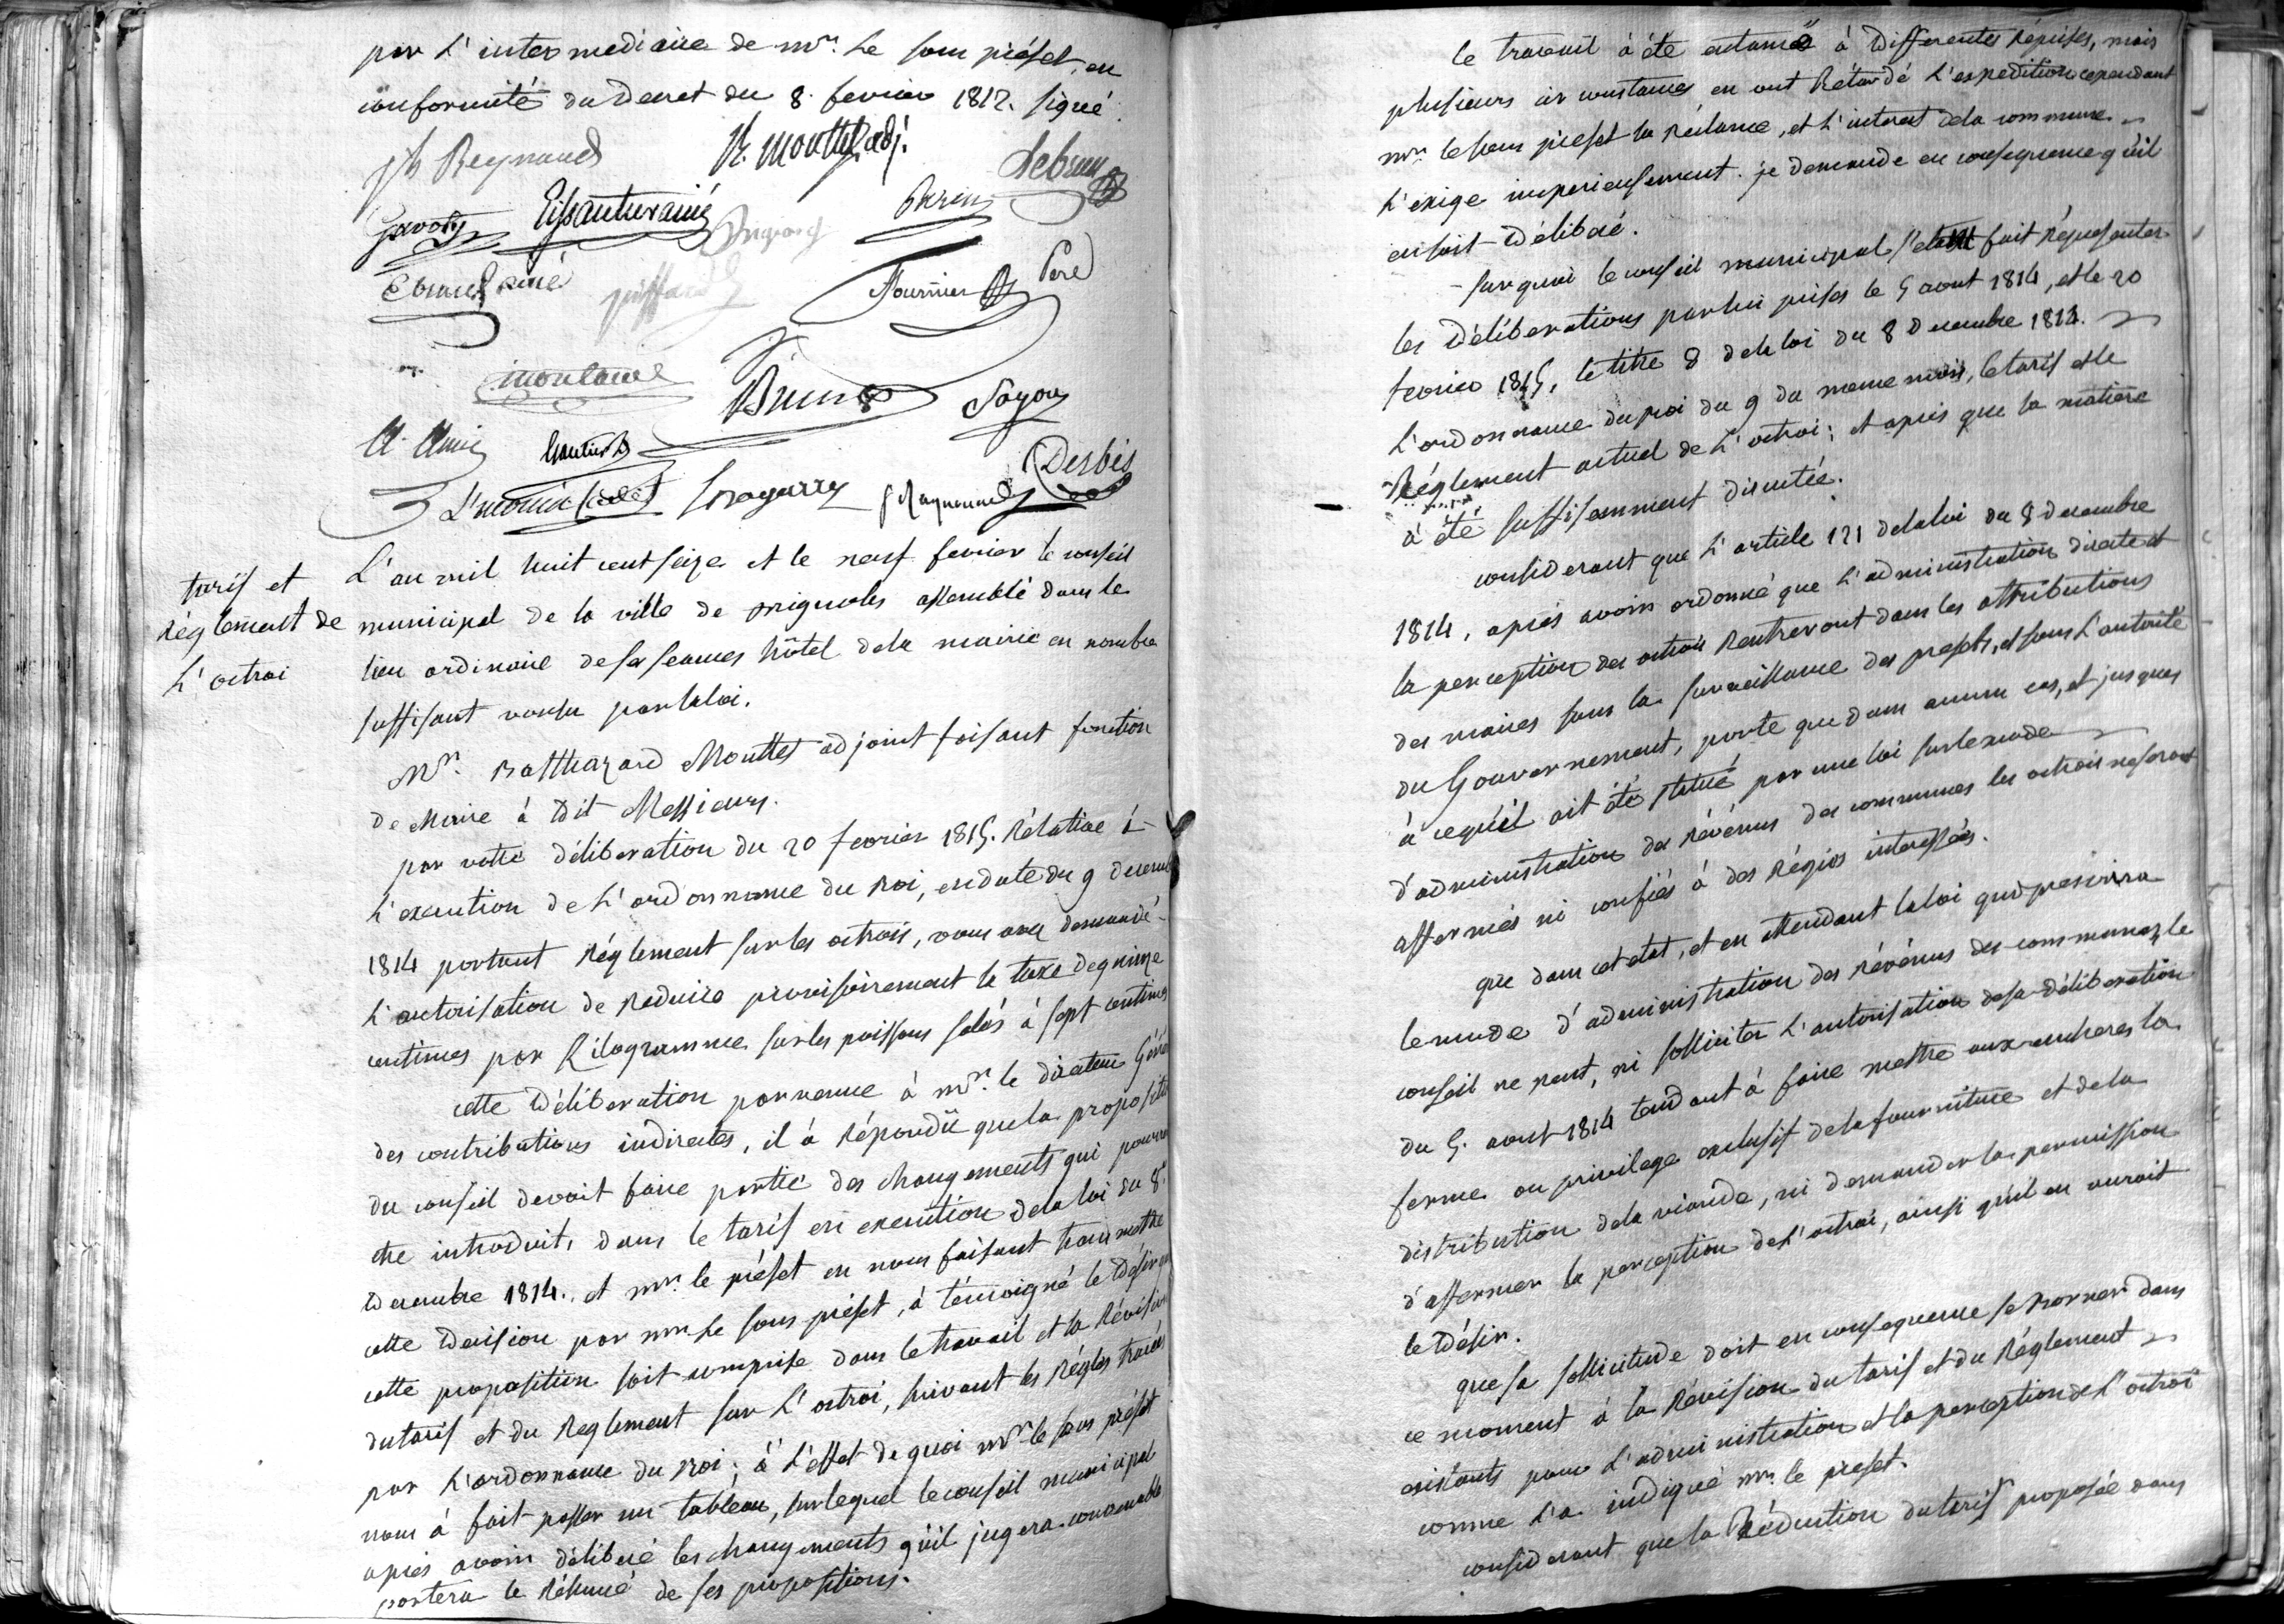 par L'intermediaire de mr. Le sous préfet, en
conformité du Decret du 8. fevrier 1812. signé
jh Reynaud
Br. Mouttet adj.
Lebrun
Gavoty
Perrin
ainé
Fournier
Pere
moulard
Brun
Fayou
Gautier
Desbis
Tarif et
Réglement de
L'octroi
L'an mil huit cent seize et le neuf fevrier le conseil
municipal de la ville de Brignoles assemblé dans le
lieu ordinaire de ses seances hôtel dela mairie en nombre
suffisant voulu par la loi.
Mr. Balthazard Mouttet adjoint faisant fonction
De Maire à Dit Messieurs.
par votre déliberation du 20 fevrier 1815. Rélative à
L'execution de L'ordonnance du Roi, en date du 9 decembre
1814 portant Réglement sur les octrois, vous avez demandé
L'autorisation de Reduire provisoirement la taxe de quinze
centimes par Kilogramme sur les poissons salés à sept centimes
cette Déliberation parvenue à mr. le directeur Géné
des contributions indirectes, il à Répondü que la propositi
du conseil devoit faire partie des changements qui pourro
etre introduits dans le tarif en execution dela loi du 8.
Decembre 1814. et mr. le préfet en nous faisant transmettre
cette Decision par mr Le sous préfet, à témoigné le Désir qu
cette proposition soit comprise dans le travail et la Révision
du tarif et du Reglement sur L'octroi, suivant les Régles tracées
par L'ordonnance du Roi; à L'effet de quoi mr. le sous préfet
nous à fait passer un tableau, sur lequel le conseil municipal
après avoir délibéré les changements qu'il jugera convenable
portera le Résumé de ses propositions.
le travail à été entamé à Differentes Réprises, mais
plusieurs circonstances en ont Rétardé L'expedition cependant
mr. le sous préfet la Réclame, et L'interet dela commune
L'exige imperieusement. je demande en consequence qu'il
en soit Déliberé.
sur quoi le conseil municipal s'étant fait Réprésenter
les Déliberations par lui prises le 5 aout 1814, et le 20
fevrier 1815, le titre 8 dela loi du 8 Decembre 1814.
L'ordonnance du Roi du 9 du meme mois, le tarif et le
Réglement actuel de L'octroi; et après que la matiere
à été suffisamment discutée.
considerant que L'article 121 dela loi du 8 decembre
1814, après avoir ordonné que L'administration directe et
la perception des octrois Rentreront dans les attributions
des maires sous la surveillance des prefets, et sous L'autorité
du Gouvernement, porte que dans aucun cas, et jusques
à cequ'il ait été statué par une loi sur le mode
d'administration des Révénus des communes les octrois ne seront
affermés ni confiés à des Régies interessées.
que dans cet etat, et en attendant la loi qui prescrira
le mode d'administration des Révénus des communes, le
conseil ne peut, ni solliciter L'autorisation de sa déliberation
du 5. aout 1814 tendant à faire mettre aux encheres la
ferme ou privilege exclusif dela fourniture et dela
distribution dela viande, ni demander la permission
d'affermer la perception de L'octroi, ainsi qu'il en auroit
le Désir.
que sa sollicitude doit en consequence se borner dans
ce moment à la Révision du tarif et du Réglement
existants pour L'administration et la perception de L'octroi
comme L'a indiqué mr. le prefet.
considerant que la Réduction du tarif proposée dans